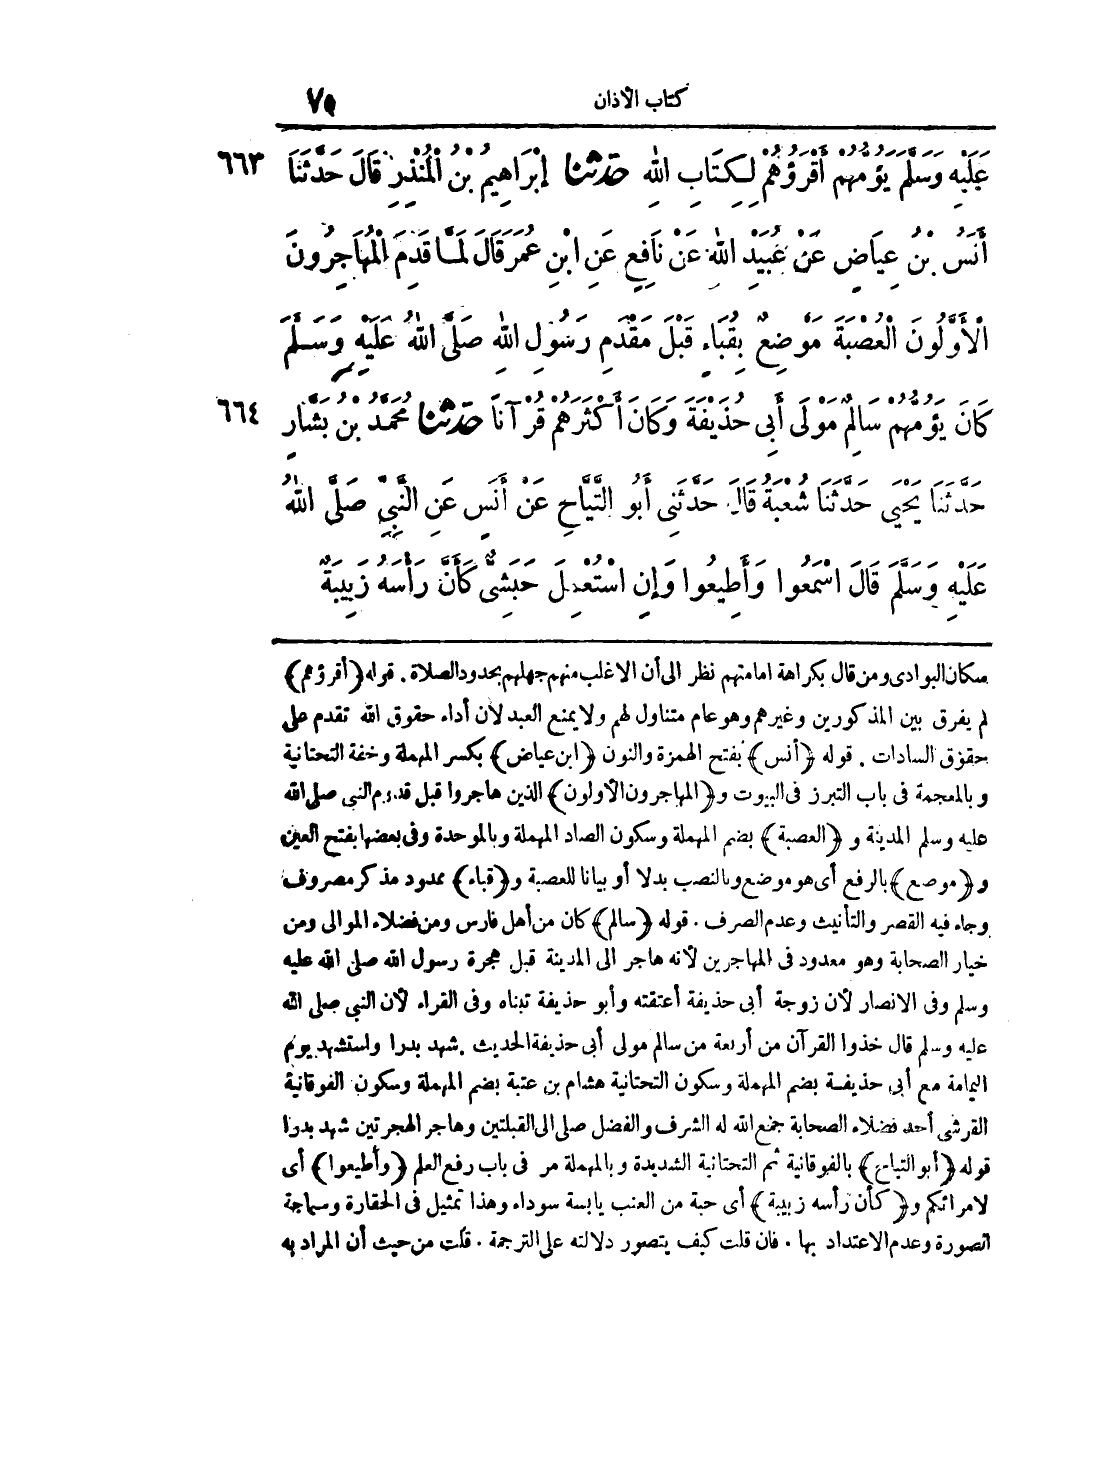 كتاب الأذان ٧٥
عَلَيْهِ وَسَلَّمَ يَؤُمُّهُمْ أَقْرَؤُهُمْ لِكِتَابِ اللهِ حدثنا إِبْرَاهِيمُ بْنُ الْمُنْذِرِ قَالَ حَدَّثَنَا ٦٦٣
أَنَسُ بْنُ عِيَاضٍ عَنْ عُبَيْدِ اللهِ عَنْ نَافِعٍ عَنِ ابْنِ عُمَرَ قَالَ لَمَّا قَدِمَ الْمُهَاجِرُونَ
الْأَوَّلُونَ الْعُصْبَةَ مَوْضِعٌ بِقُبَاءٍ قَبْلَ مَقْدَمِ رَسُولِ اللهِ صَلَّى اللهُ عَلَيْهِ وَسَلَّمَ
كَانَ يَؤُمُّهُمْ سَالِمٌ مَوْلَى أَبِي حُذَيْفَةَ وَكَانَ أَكْثَرَهُمْ قُرْآنًا حدثنا مُحَمَّدُ بْنُ بَشَّارٍ ٦٦٤
حَدَّثَنَا يَحْيَى حَدَّثَنَا شُعْبَةُ قَالَ حَدَّثَنِي أَبُو التَّيَّاحِ عَنْ أَنَسٍ عَنِ النَّبِيِّ صَلَّى اللهُ
عَلَيْهِ وَسَلَّمَ قَالَ اسْمَعُوا وَأَطِيعُوا وَإِنِ اسْتُعْمِلَ حَبَشِيٌّ كَأَنَّ رَأْسَهُ زَبِيبَةٌ
سكان البوادى ومن قال بكراهة امامتهم نظر الى أن الاغلب منهم جهلهم بحدود الصلاة . قوله ﴿أقرؤهم﴾
لم يفرق بين المذكورين وغيرهم وهو عام متناول لهم ولا يمنع العبد لأن أداء حقوق الله تقدم على
حقوق السادات . قوله ﴿أنس﴾ بفتح الهمزة والنون ﴿ابن عياض﴾ بكسر المهملة وخفة التحتانية
وبالمعجمة فى باب التبرز فى البيوت و﴿المهاجرون الأولون﴾ الذين هاجروا قبل قدوم النبى صلى الله
عليه وسلم المدينة و﴿العصبة﴾ بضم المهملة وسكون الصاد المهملة وبالموحدة وفى بعضها بفتح العين
و﴿موضع﴾ بالرفع أى هو موضع وبالنصب بدلا أو بيانا للعصبة و﴿قباء﴾ ممدود مذكر مصروف
وجاء فيه القصر والتأنيث وعدم الصرف . قوله ﴿سالم﴾ كان من أهل فارس ومن فضلاء الموالى ومن
خيار الصحابة وهو معدود فى المهاجرين لأنه هاجر الى المدينة قبل هجرة رسول الله صلى الله عليه
وسلم وفى الانصار لأن زوجة أبى حذيفة أعتقته وأبو حذيفة تبناه وفى القراء لأن النبى صلى الله
عليه وسلم قال خذوا القرآن من أربعة من سالم مولى أبى حذيفة الحديث . شهد بدرا واستشهد يوم
اليمامة مع أبى حذيفة بضم المهملة وسكون التحتانية هشام بن عتبة بضم المهملة وسكون الفوقانية
القرشى أحد فضلاء الصحابة جمع الله له الشرف والفضل صلى الى القبلتين وهاجر الهجرتين شهد بدرا
قوله ﴿أبو التياح﴾ بالفوقانية ثم التحتانية الشديدة وبالمهملة مر فى باب رفع العلم ﴿وأطيعوا﴾ أى
لامرائكم و﴿كأن رأسه زبيبة﴾ أى حبة من العنب يابسة سوداء وهذا تمثيل فى الحقارة وسماجة
الصورة وعدم الاعتداد بها . فان قلت كيف يتصور دلالته على الترجمة . قلت من حيث أن المراد به